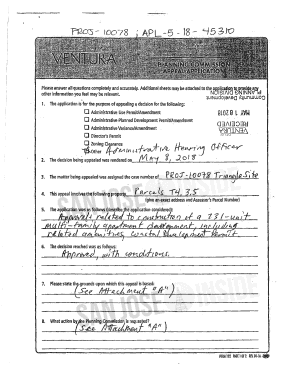 PROJ-10078 ; APL-5-18-45310
VENTURA
PLANNING COMMISSION
APPEAL APPLICATION
Please answer all questions completely and accurately. Additional sheets may be attached to the application to provide any
other information you feel may be relevant.
1. The application is for the purpose of appealing a decision for the following:
Administrative Use Permit/Amendment
Administrative-Planned Development Permit/Amendment
Administrative Variance/Amendment
Director's Permit
Zoning Clearance
Administrative Hearing Officer
PLANNING DIVISION
Community Development
MAY 18 2018
RECEIVED
VENTURA
2. The decision being appealed was rendered on May 8, 2018
3. The matter being appealed was assigned the case number of: PROJ-10078 Triangle Site
4. This appeal involves the following property: Parcels T4,3,5
(give an exact address and Assessor's Parcel Number)
5. The application was as follows (describe the application considered):
Approvals related to construction of a 231-unit
multi-family apartment development, including
related amenities, Coastal Development Permit
6. The decision reached was as follows:
Approved, with conditions.
7. Please state the grounds upon which this appeal is based:
(See Attachment "A")
8. What action by the Planning Commission is requested?
(See Attachment "A")
SAN JOSE INSIDE